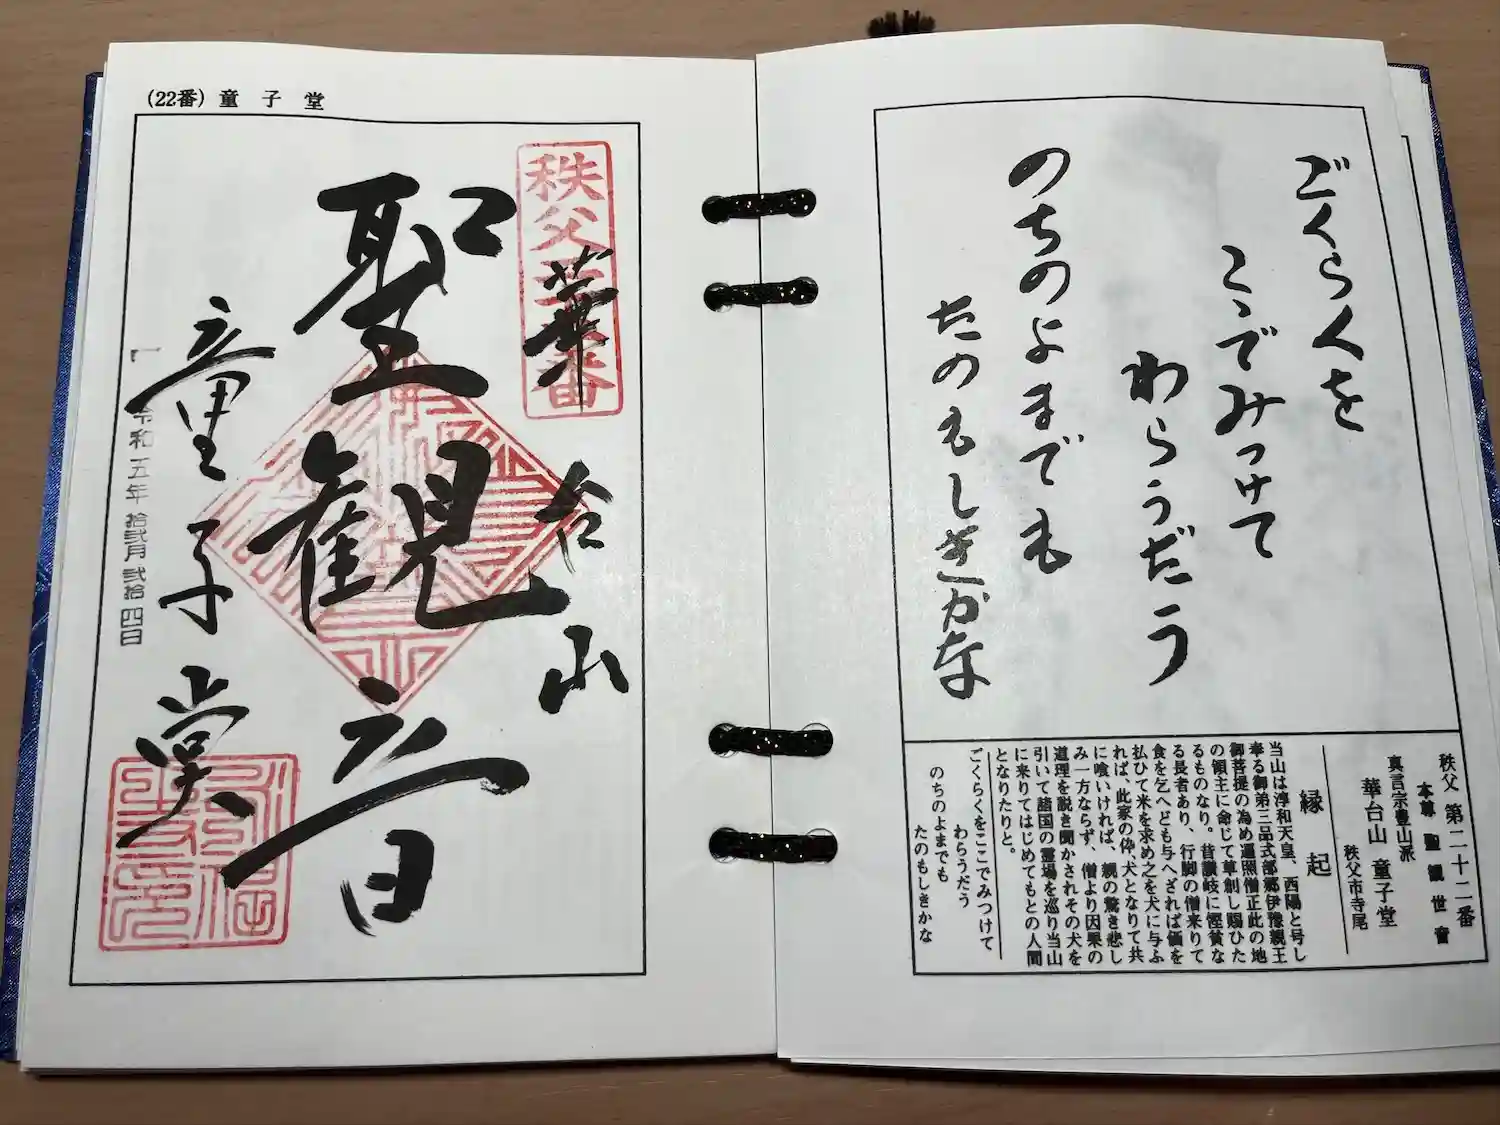 (22番) 童子堂
秩父
番
華台山
聖観音
童子堂
令和五年拾弐月弐拾四日
ごくらくを
こゝでみつけて
わらうだう
のちのよまでも
たのもしきかな
秩父 第二十二番
本尊 聖観世音
真言宗豊山派
華台山 童子堂
秩父市寺尾
縁起
当山は淳和天皇、西陽と号し
奉る御弟三品式部郷伊豫親王
御菩提の為め遍照僧正此の地
の領主に命じて草創し賜ひた
るものなり。昔讃岐に慳貪な
る長者あり、行脚の僧来りて
食を乞へども与へざれば価を
払ひて米を求め之を犬に与ふ
れば、此家の伜、犬となりて共
に喰いければ、親の驚き悲し
み一方ならず、僧より因果の
道理を説き聞かされその犬を
引いて諸国の霊場を巡り当山
に来りてはじめてもとの人間
となりたりと。
ごくらくをここでみつけて
わらうだう
のちのよまでも
たのもしきかな